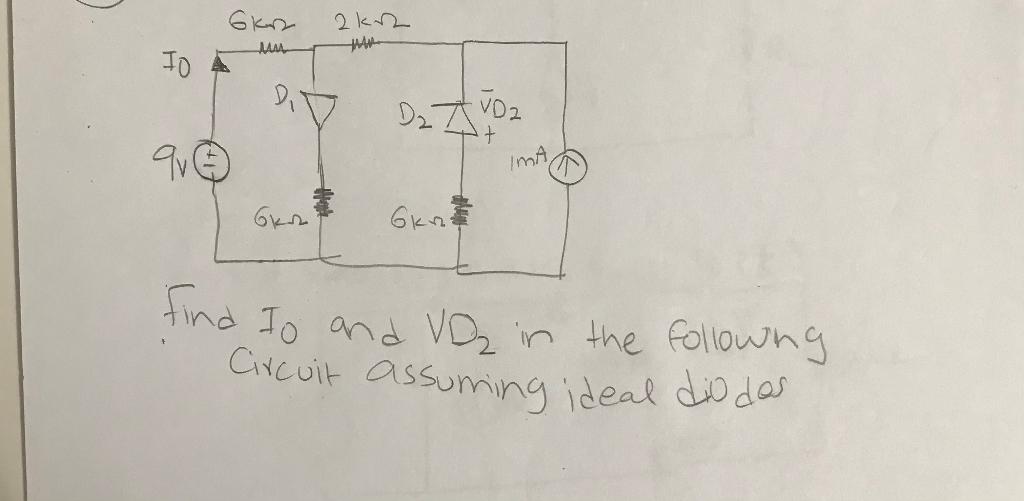 6kΩ 2kΩ
I0
D1
D2
VD2
- +
9v
+ -
1mA
6kΩ
6kΩ
find I0 and VD2 in the followng
Circuit assuming ideal diodes